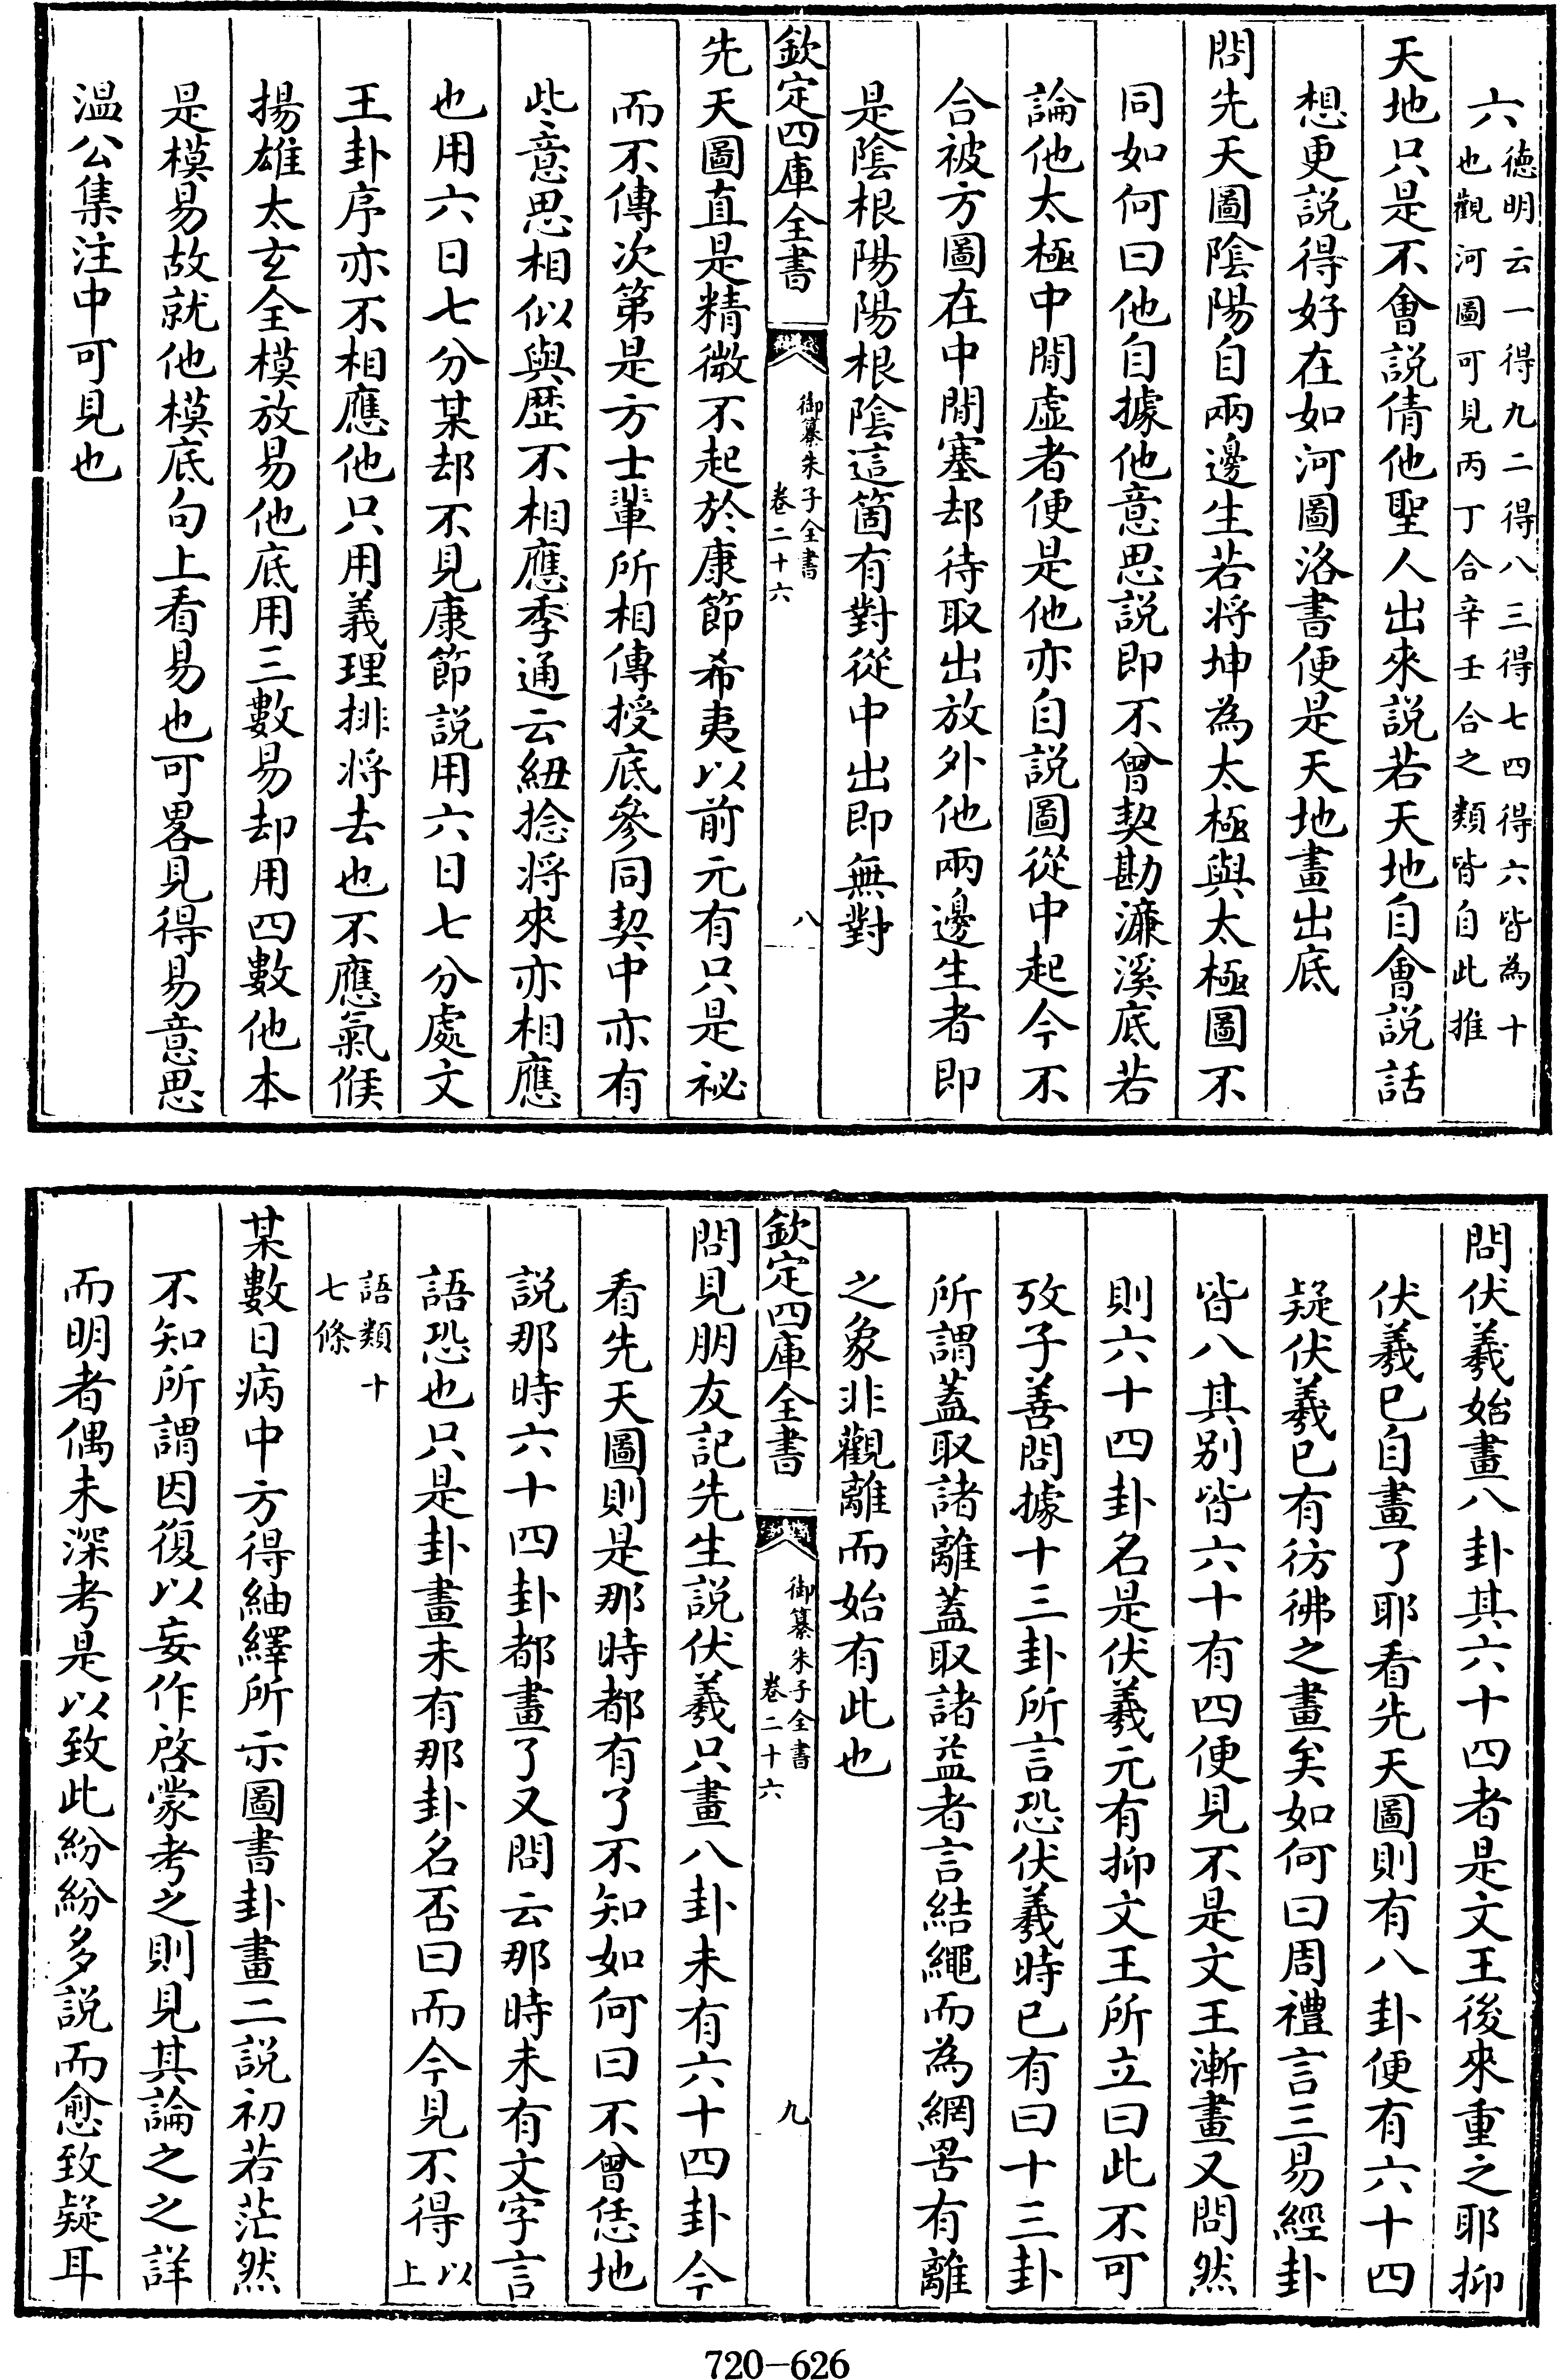 六德明云一得九二得八三得七四得六皆為十
也觀河圖可見丙丁合辛壬合之類皆自此推
天地只是不會說倩他聖人出來說若天地自會說話
想更說得好在如河圖洛書便是天地畫出底
問先天圖陰陽自兩邊生若將坤為太極與太極圖不
同如何曰他自據他意思說即不曾契勘濂溪底若
論他太極中閒虛者便是他亦自說圖從中起今不
合被方圖在中閒塞却待取出放外他兩邊生者即
是陰根陽陽根陰這箇有對從中出即無對
欽定四庫全書
御纂朱子全書
卷二十六
八
先天圖直是精微不起於康節希夷以前元有只是祕
而不傳次第是方士輩所相傳授底參同契中亦有
此意思相似與歷不相應季通云紐捻將來亦相應
也用六日七分某却不見康節說用六日七分處文
王卦序亦不相應他只用義理排將去也不應氣候
揚雄太玄全模放易他底用三數易却用四數他本
是模易故就他模底句上看易也可畧見得易意思
溫公集注中可見也
問伏羲始畫八卦其六十四者是文王後來重之耶抑
伏羲已自畫了耶看先天圖則有八卦便有六十四
疑伏羲已有彷彿之畫矣如何曰周禮言三易經卦
皆八其別皆六十有四便見不是文王漸畫又問然
則六十四卦名是伏羲元有抑文王所立曰此不可
攷子善問據十三卦所言恐伏羲時已有曰十三卦
所謂蓋取諸離蓋取諸益者言結繩而為網罟有離
之象非觀離而始有此也
欽定四庫全書
御纂朱子全書
卷二十六
九
問見朋友記先生說伏羲只畫八卦未有六十四卦今
看先天圖則是那時都有了不知如何曰不曾恁地
說那時六十四卦都畫了又問云那時未有文字言
語恐也只是卦畫未有那卦名否曰而今見不得以
上
語類十
七條
某數日病中方得紬繹所示圖書卦畫二說初若茫然
不知所謂因復以妄作啓蒙考之則見其論之之詳
而明者偶未深考是以致此紛紛多說而愈致疑耳
720-626